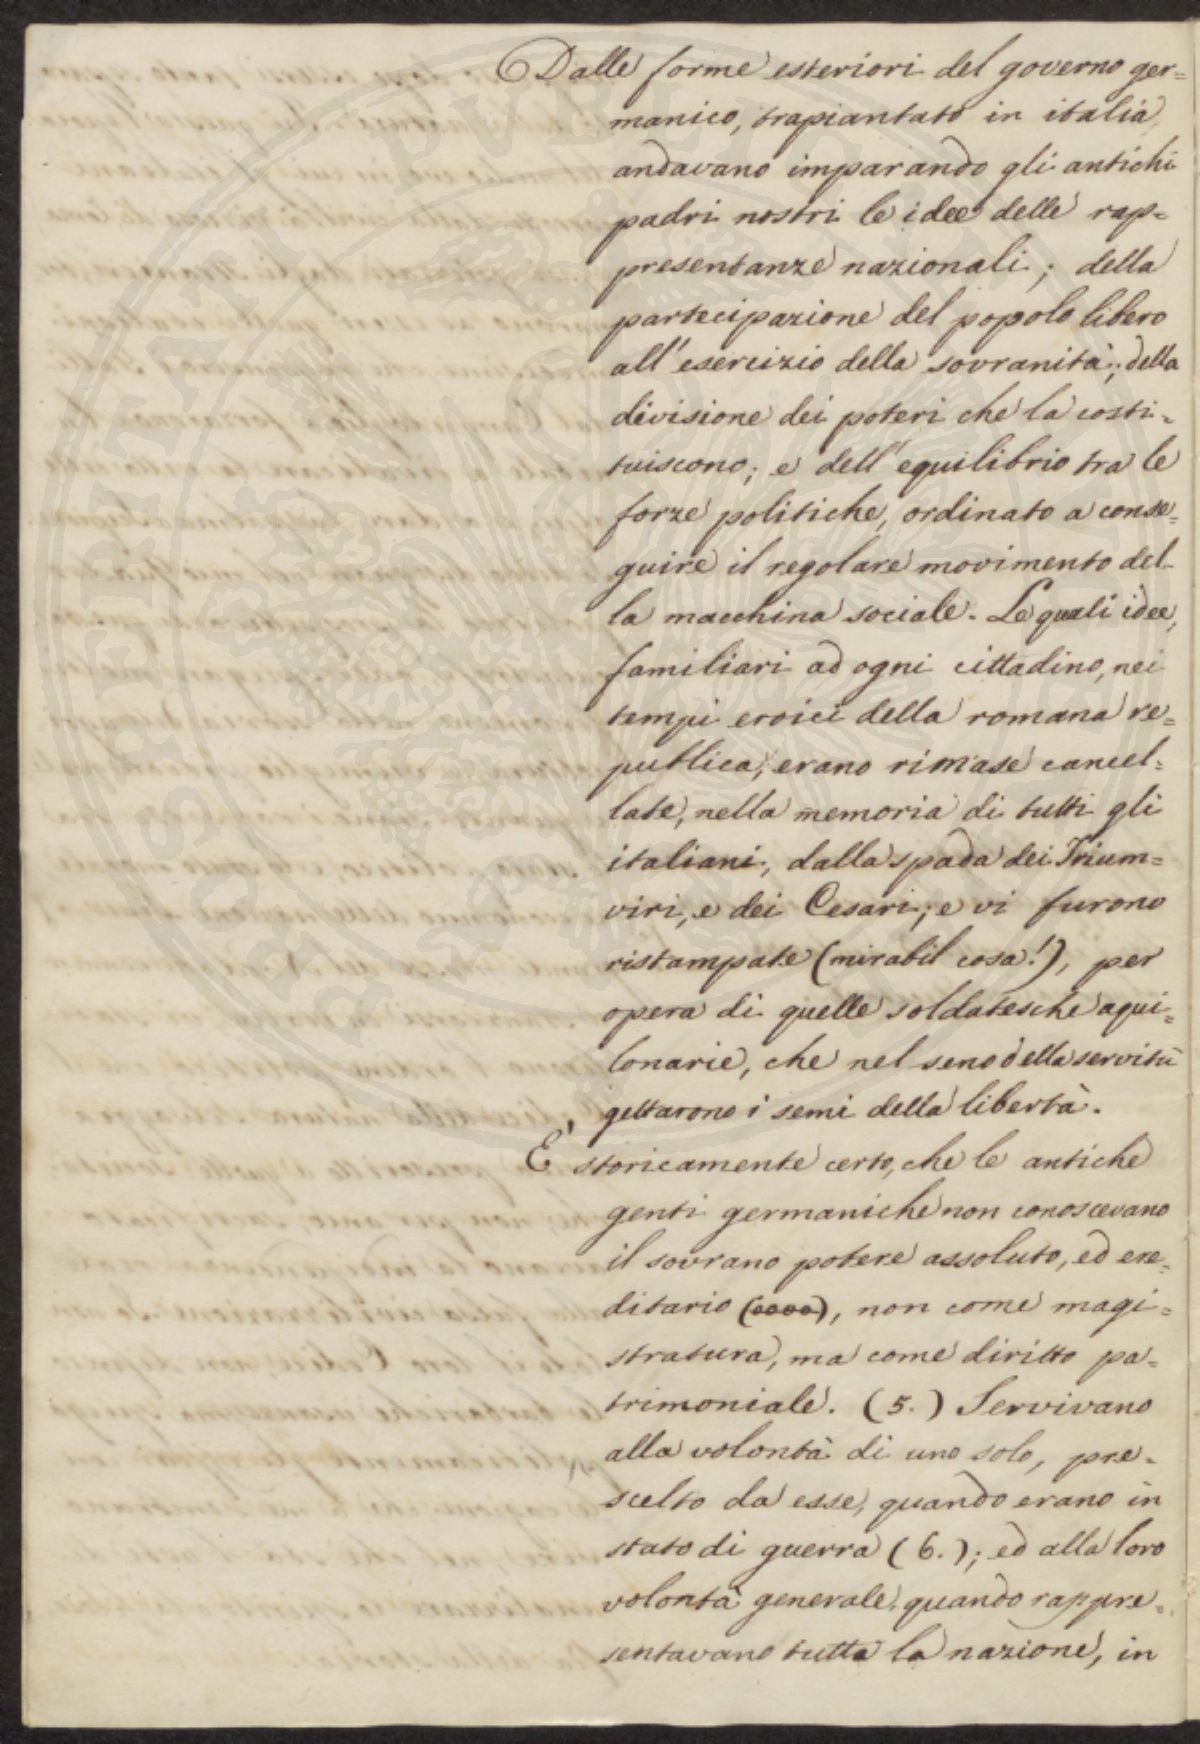 Dalle forme esteriori del governo ger=
manico, trapiantato in italia,
andavano imparando gli antichi
padri nostri le idee delle rap=
presentanze nazionali; della
partecipazione del popolo libero
all'esercizio della sovranità; della
divisione dei poteri che la costi=
tuiscono; e dell'equilibrio tra le
forze politiche, ordinato a conse=
guire il regolare movimento del
la macchina sociale. Le quali idee,
familiari ad ogni cittadino, nei
tempi eroici della romana re=
publica, erano rimase cancel=
late, nella memoria di tutti gli
italiani, dalla spada dei Trium=
viri, e dei Cesari; e vi furono
ristampate (mirabil cosa!), per
opera di quelle soldatesche aqui=
lonarie, che nel seno della servitù
gettarono i semi della libertà.
E' storicamente certo, che le antiche
genti germaniche non conoscevano
il sovrano potere assoluto, ed ere=
ditario, non come magi=
stratura, ma come diritto pa=
trimoniale. (5.) Servivano
alla volontà di uno solo, pre=
scelto da esse, quando erano in
stato di guerra (6.); ed alla loro
volontà generale, quando rappre=
sentavano tutta la nazione, in